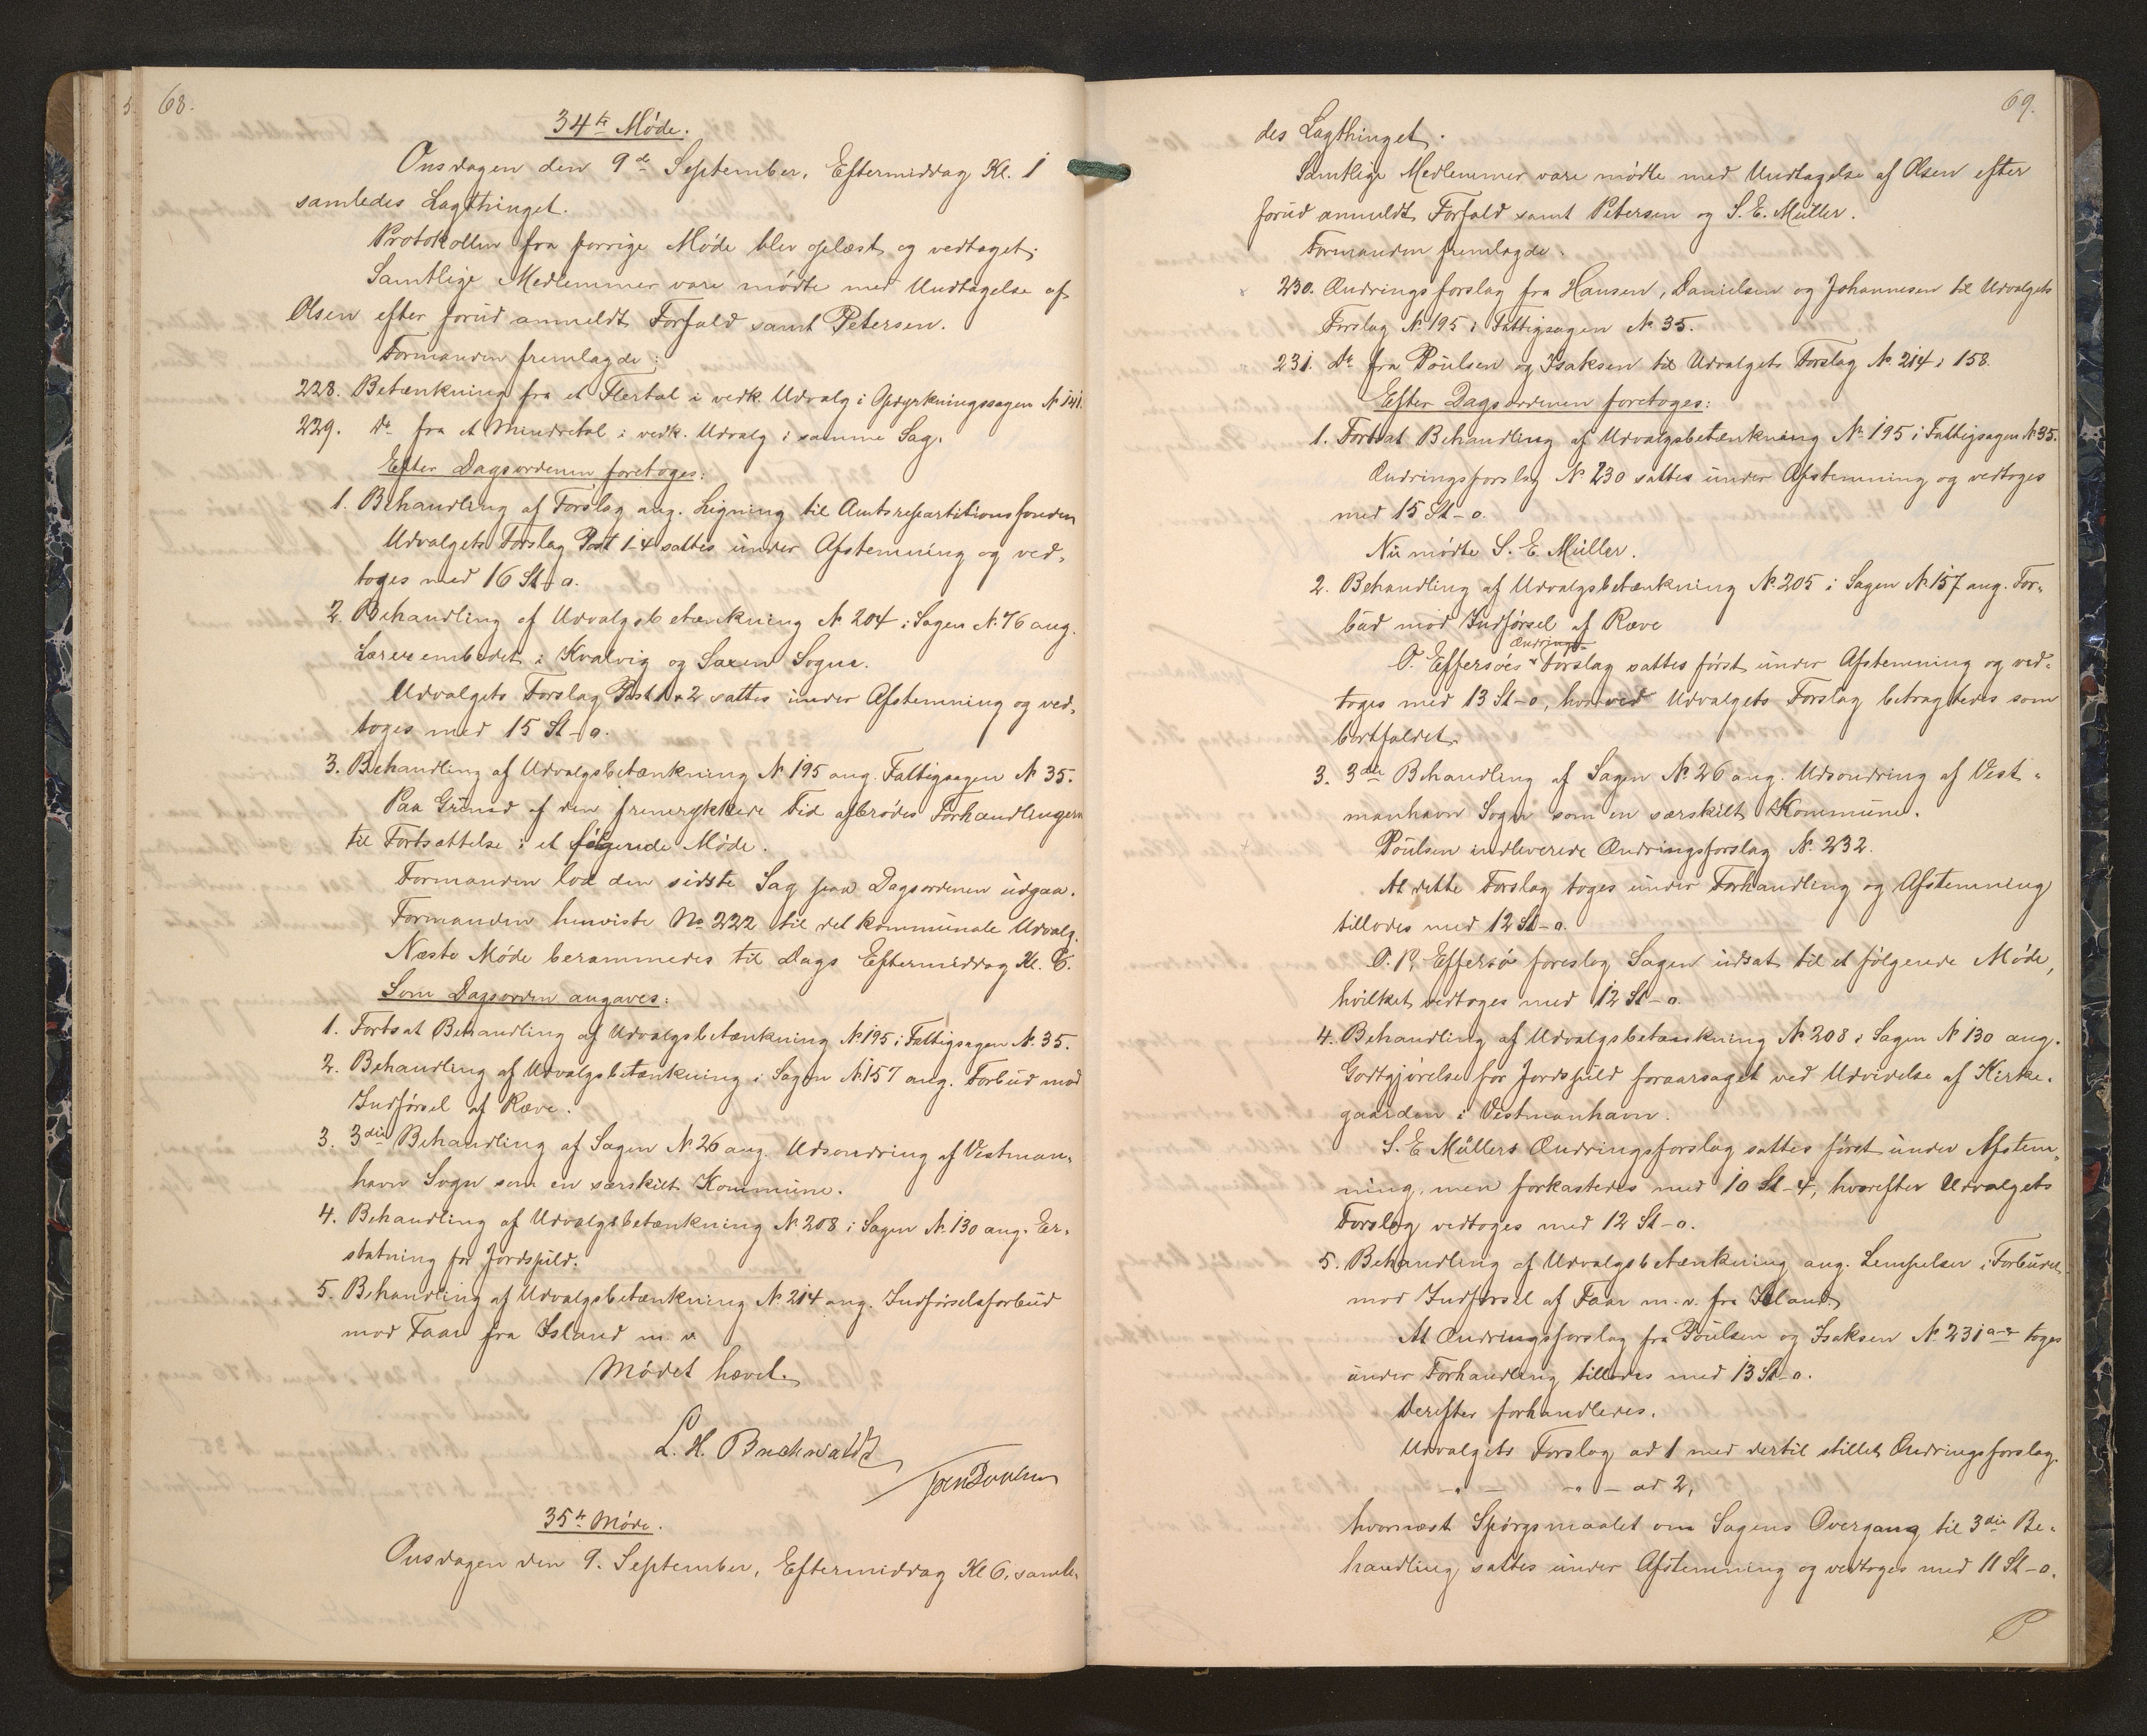 68.
34te Møde.
Onsdagen den 9de September, Eftermiddag Kl. 1
samledes Lagthinget.
Protokollen fra forrige Møde blev oplæst og vedtaget.
Samtlige Medlemmer vare mødte med Undtagelse af
Olsen efter forud anmeldt Forfald samt Petersen.
Formanden fremlagde:
228. Betænkning fra et Flertal i vedk. Udvalg i Opdyrkningssagen № 141.
229. do fra et Mindretal i vedk. Udvalg i samme Sag.
Efter Dagsordenen foretoges:
1. Behandling af Forslag ang. Ligning til Amtsrepartitionsfonden
Udvalgets Forslag Post 1-4 sattes under Afstemning og ved-
toges med 16 St - o.
2. Behandling af Udvalgsbetænkning № 204 i Sagen № 76 ang.
Lærerembedet i Kvalvig og Saxen Sogne.
Udvalgets Forslag Post 1 & 2 sattes under Afstemning og ved-
toges med 15 St - o.
3. Behandling af Udvalgsbetænkning № 195 ang. Fattigsagen № 35.
Paa Grund af den fremrykkede Tid afbrødes Forhandlingen
til Fortsættelse i et følgende Møde.
Formanden lod den sidste Sag paa Dagsordenen udgaa.
Formanden henviste No 222 til det kommunale Udvalg.
Næste Møde berammedes til Dags Eftermiddag Kl. 6.
Som Dagsorden angaves:
1. Fortsat Behandling af Udvalgsbetænkning № 195 i Fattigsagen № 35.
2. Behandling af Udvalgsbetænkning i Sagen № 157 ang. Forbud mod
Indførsel af Ræve.
3. 3die Behandling af Sagen № 26 ang. Udsondring af Vestman-
havn Sogn som en særskilt Kommune.
4. Behandling af Udvalgsbetænkning № 208 i Sagen № 130 ang. Er-
statning for Jordspild.
5. Behandling af Udvalgsbetænkning № 214 ang. Indførselsforbud
mod Faar fra Island m. v.
Mødet hævet.
L. H. Buchwaldt
35te Møde.
Onsdagen den 9. September, Eftermiddag Kl 6. samle-
69.
des Lagthinget.
Samtlige Medlemmer vare mødte med Undtagelse af Olsen efter
forud anmeldt Forfald samt Petersen og S. E. Müller.
Formanden fremlagde:
230. Ændringsforslag fra Hansen, Danielsen og Johannesen til Udvalgets
Forslag № 195 i Fattigsagen № 35.
231. do fra Poulsen og Isaksen til Udvalgets Forslag № 214 i 158.
Efter Dagsordenen foretoges:
1. Fortsat Behandling af Udvalgsbetænkning № 195 i Fattigsagen № 35.
Ændringsforslag № 230 sattes under Afstemning og vedtoges
med 15 St - o.
Nu mødte S. E. Müller.
2. Behandling af Udvalgsbetænkning № 205 i Sagen № 157 ang. For-
bud mod Indførsel af Ræve
Ændrings-
O. Effersøes Forslag sattes først under Afstemning og ved-
toges med 13 St - o, hvorved Udvalgets Forslag betragtedes som
bortfaldet.
3. 3die Behandling af Sagen № 26 ang. Udsondring af Vest-
manhavn Sogn som en særskilt Kommune.
Poulsen indleverede Ændringsforslag № 232.
At dette Forslag toges under Forhandling og Afstemning
tillodes med 12 St - o.
O. P. Effersø foreslog Sagen udsat til et følgende Møde,
hvilket vedtoges med 12 St - o.
4. Behandling af Udvalgsbetænkning № 208 i Sagen № 130 ang.
Godtgjørelse for Jordspild foraarsaget ved Udvidelse af Kirke-
gaarden i Vestmanhavn.
S. E Müllers Ændringsforslag sattes først under Afstem-
ning, men forkastedes med 10 St - 4, hvorefter Udvalgets
Forslag vedtoges med 12 St - o.
5. Behandling af Udvalgsbetænkning ang. Lempelser i Forbudet
mod Indførsel af Faar m. v. fra Island.
At Ændringsforslag fra Poulsen og Isaksen № 231 toges
under Forhandling tillodes med 13 St - o.
Derefter forhandledes.
Udvalgets Forslag ad 1 med dertil stillet Ændringsforslag.
-"- -"- ad 2,
hvornæst Spørgsmaalet om Sagens Overgang til 3die Be-
handling sattes under Afstemning og vedtoges med 11 St - o.